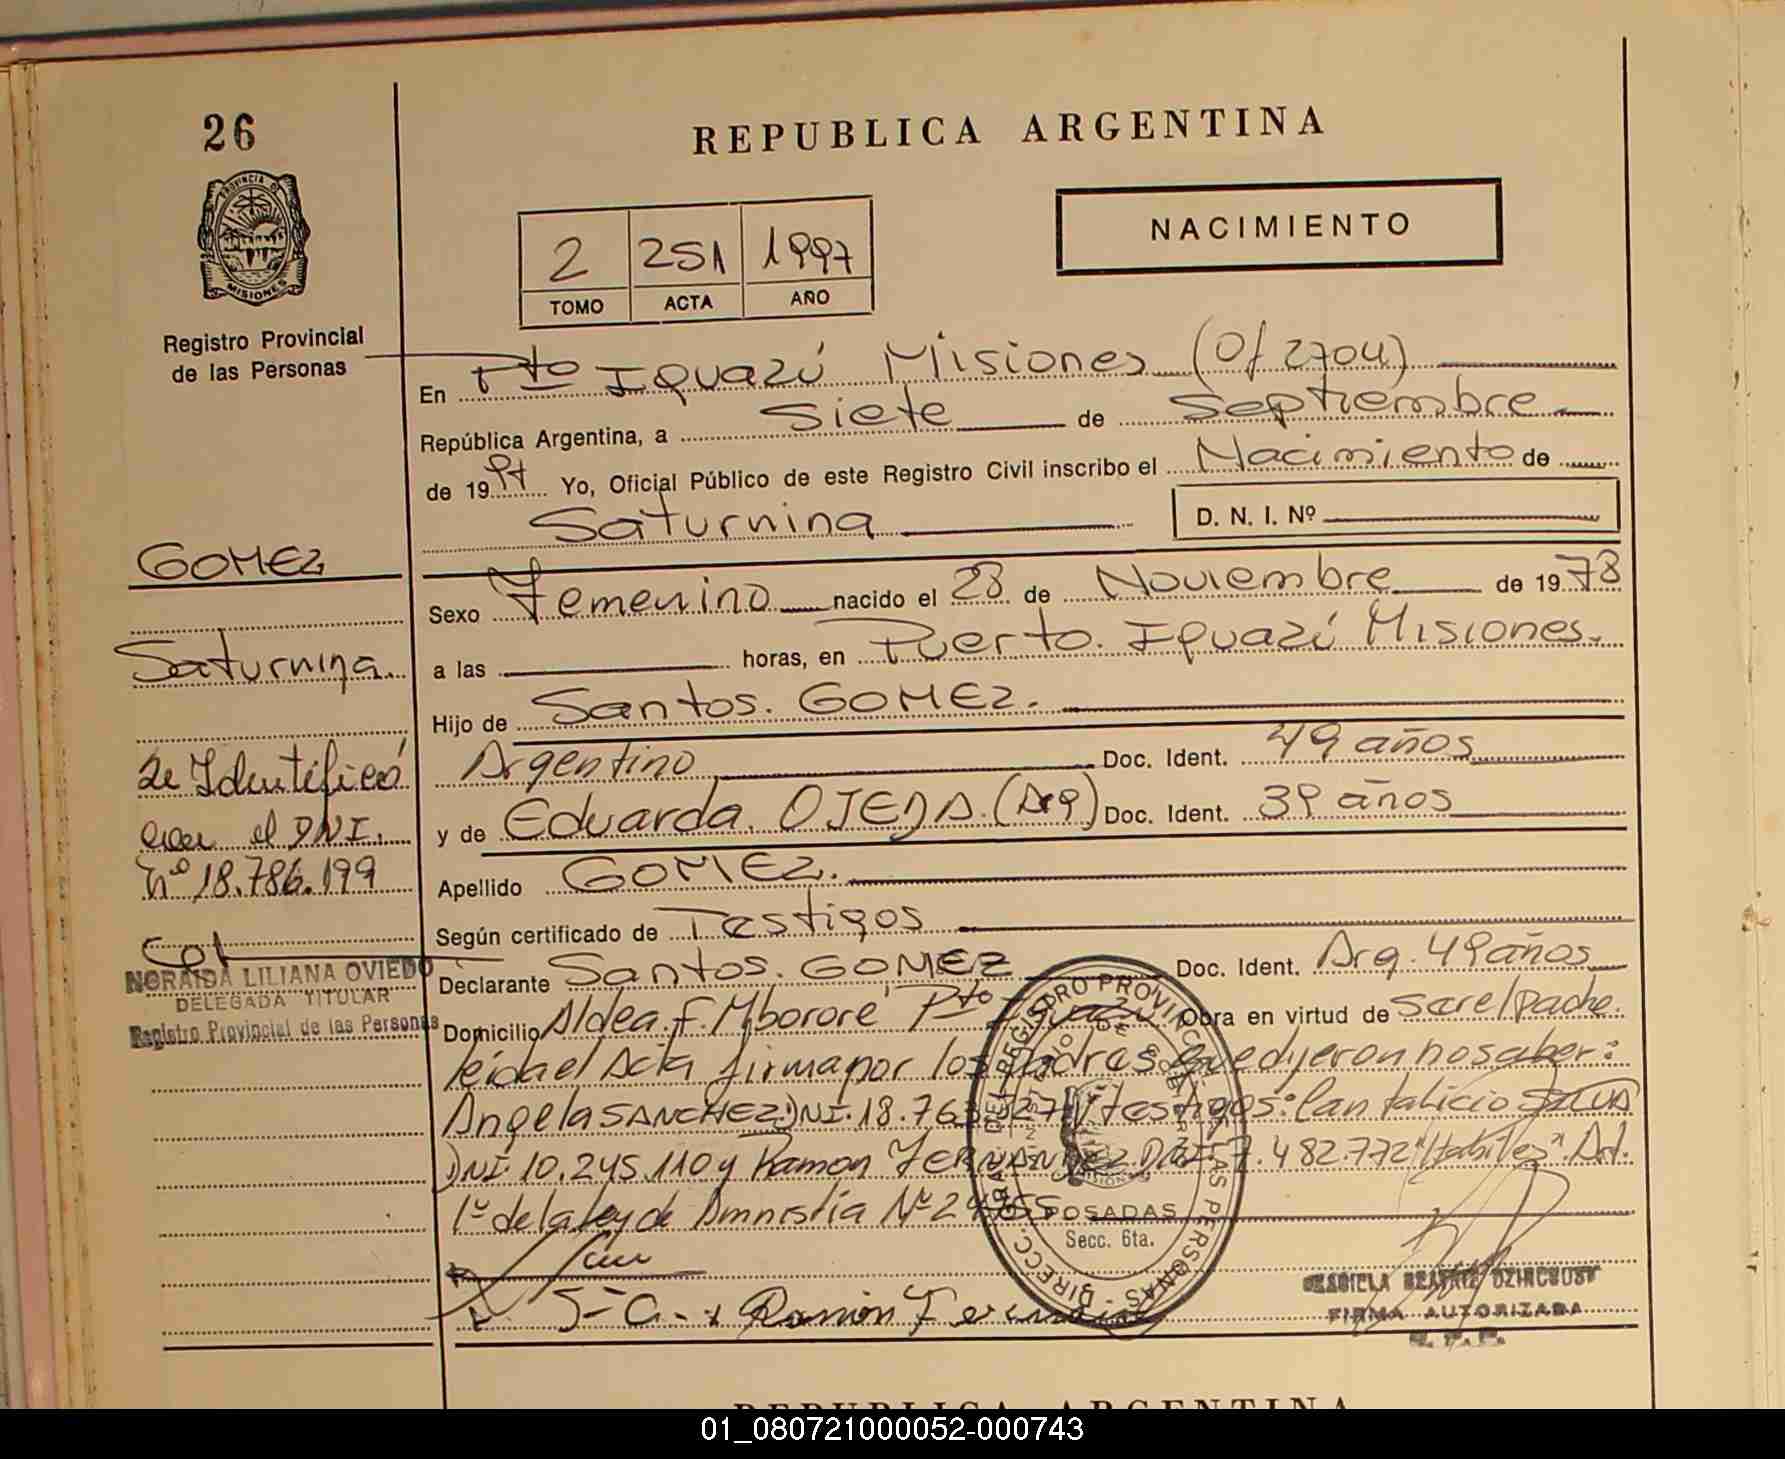 26
REPUBLICA ARGENTINA
PROVINCIA DE
MISIONES
Registro Provincial
de las Personas
2 251 1997
TOMO ACTA AÑO
NACIMIENTO
En Pto Iguazú Misiones (Of 2704)
República Argentina, a siete de Septiembre
de 1997 Yo, Oficial Público de este Registro Civil inscribo el Nacimiento de
Saturnina D. N. I. Nº
GOMEZ
Saturnina
Se Identificó
con el DNI.
nº 18.786.199
NORAIDA LILIANA OVIEDO
DELEGADA TITULAR
Registro Provincial de las Personas
Sexo Femenino nacido el 28 de Noviembre de 1978
a las horas, en Puerto. Iguazú Misiones.
Hijo de Santos. GOMEZ.
Argentino Doc. Ident. 49 años
y de Eduarda. OJEDA. (Arg) Doc. Ident. 39 años
Apellido GOMEZ.
Según certificado de Testigos
Declarante Santos. GOMEZ Doc. Ident. Arg. 49 años
Domicilio Aldea. F. Mbororé Pto Iguazú Obra en virtud de ser el padre.
leída el Acta firma por los padres que dijeron no saber:
Angela SANCHEZ DNI. 18.763. testigos: Pantalicio
DNI. 10.245.110 y Ramon FERNANDEZ DNI. 7.482.772 "Habiles". Art.
1º de la ley de Amnistía Nº 24755
DIRECC. GRAL. DEL REGISTRO PROVINCIAL DE LAS PERSONAS
MINISTERIO DE GOBIERNO
MISIONES
POSADAS
Secc. 6ta.
S-G-
Ramón Fernandez
FIRMA AUTORIZADA
R. P. P.
REPUBLICA ARGENTINA
01_080721000052-000743